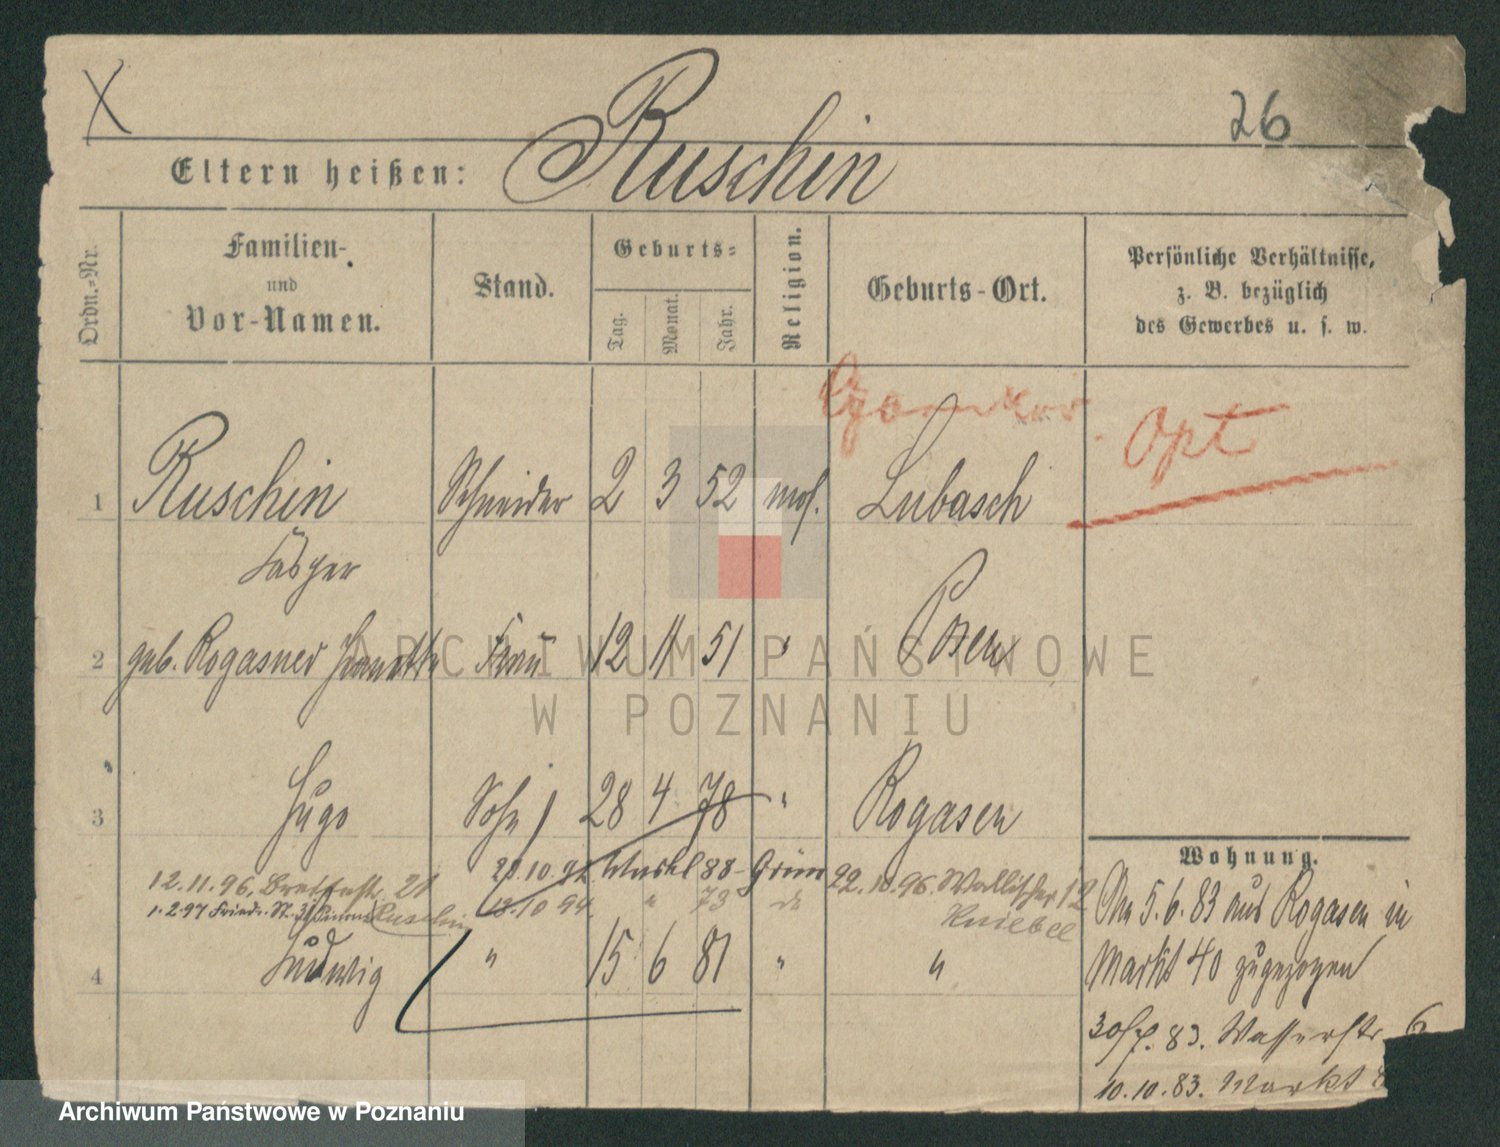 X
26
Eltern heißen: Ruschin
Ordn.-Nr.
Familien-
und
Vor-Namen.
Stand.
Geburts-
Tag.
Monat.
Jahr.
Religion.
Geburts-Ort.
Persönliche Verhältnisse,
z. B. bezüglich
des Gewerbes u. s. w.
Opt
1 Ruschin Schneider 2 3 52 mos. Lubasch
2 geb. Rogasner Frau 12 11 51 " Posen
3 Hugo Sohn 28 4 78 " Rogasen
12.11.96. 21 88- 22.10.96. Wallischei 12
1.2.97 Ruschin 13.10 94. " 73 do
4 Ludwig " 15 6 81 " "
Wohnung.
5.6.83 aus Rogasen in
Markt 40 zugezogen
83. Wasserstr. 6
10.10.83. Markt
ARCHIWUM PAŃSTWOWE
W POZNANIU
Archiwum Państwowe w Poznaniu